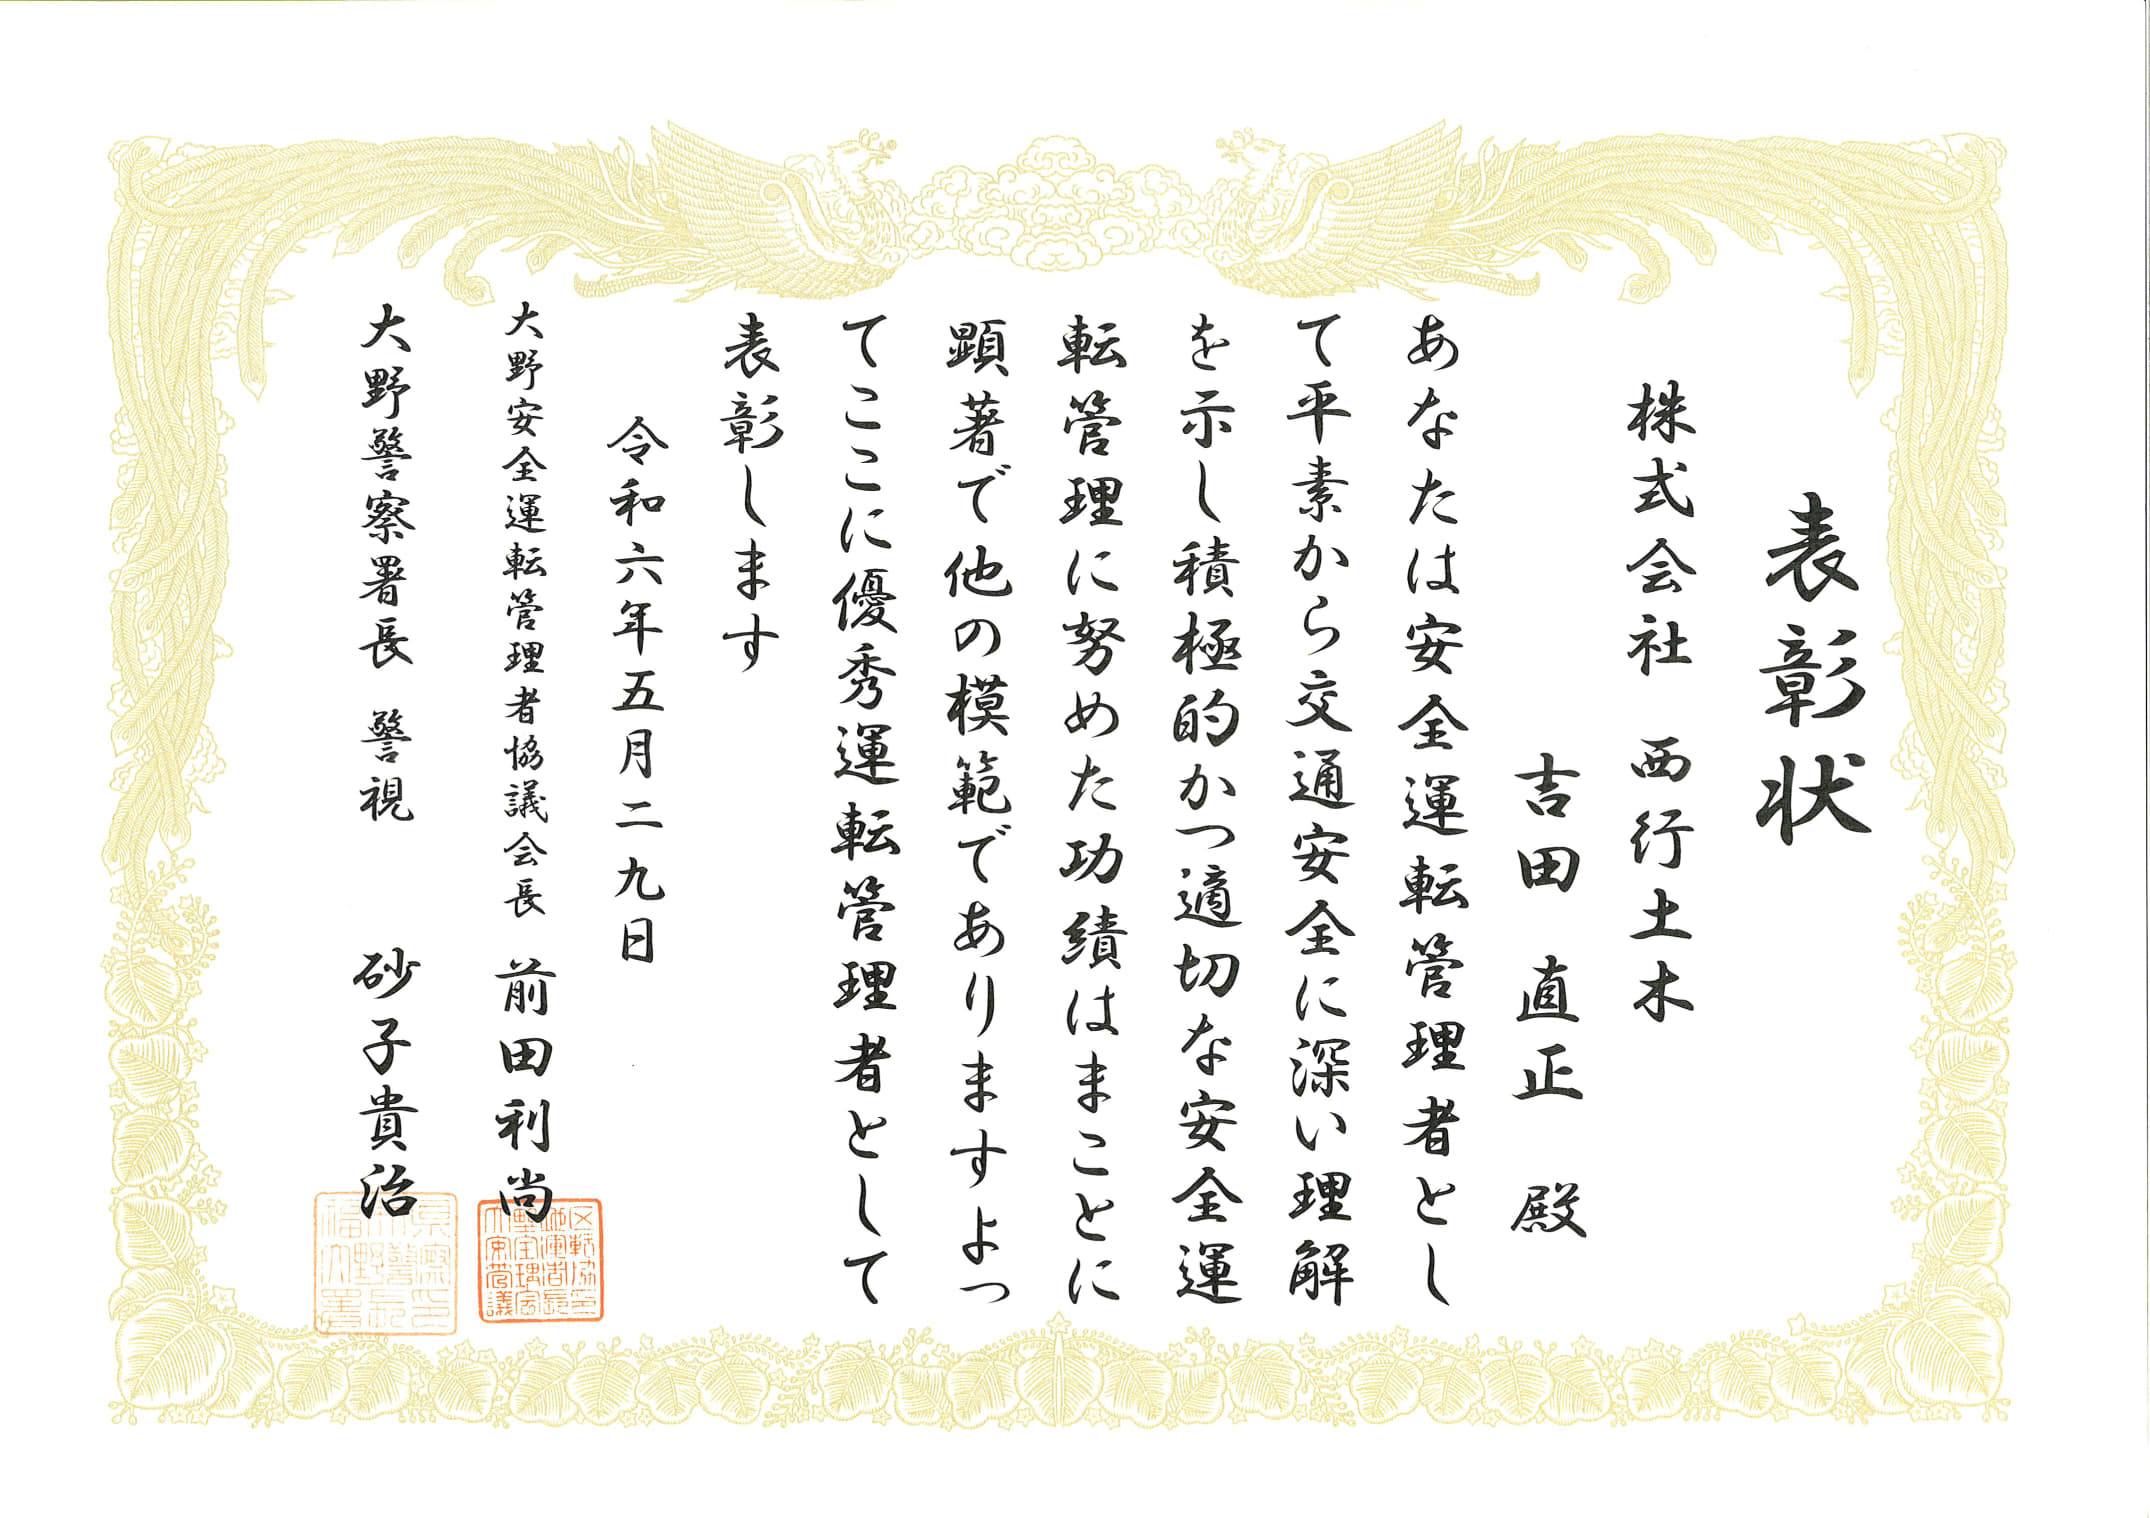 表彰状
株式会社 西行土木
吉田 直正 殿
あなたは安全運転管理者とし
て平素から交通安全に深い理解
を示し積極的かつ適切な安全運
転管理に努めた功績はまことに
顕著で他の模範でありますよっ
てここに優秀運転管理者として
表彰します
令和六年五月二九日
大野安全運転管理者協議会長 前田利尚
大野警察署長 警視 砂子貴治